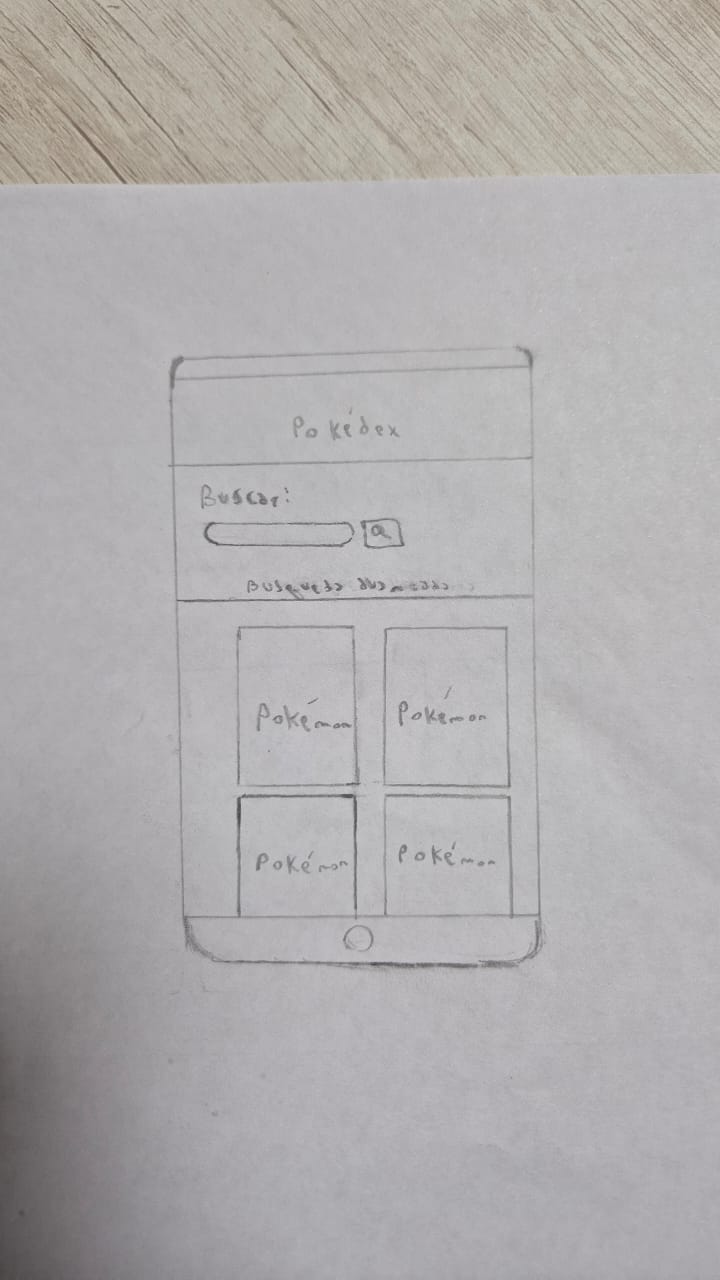 Pokédex
Buscar:
Busqueda avanzada
Pokémon Pokémon
Pokémon Pokémon